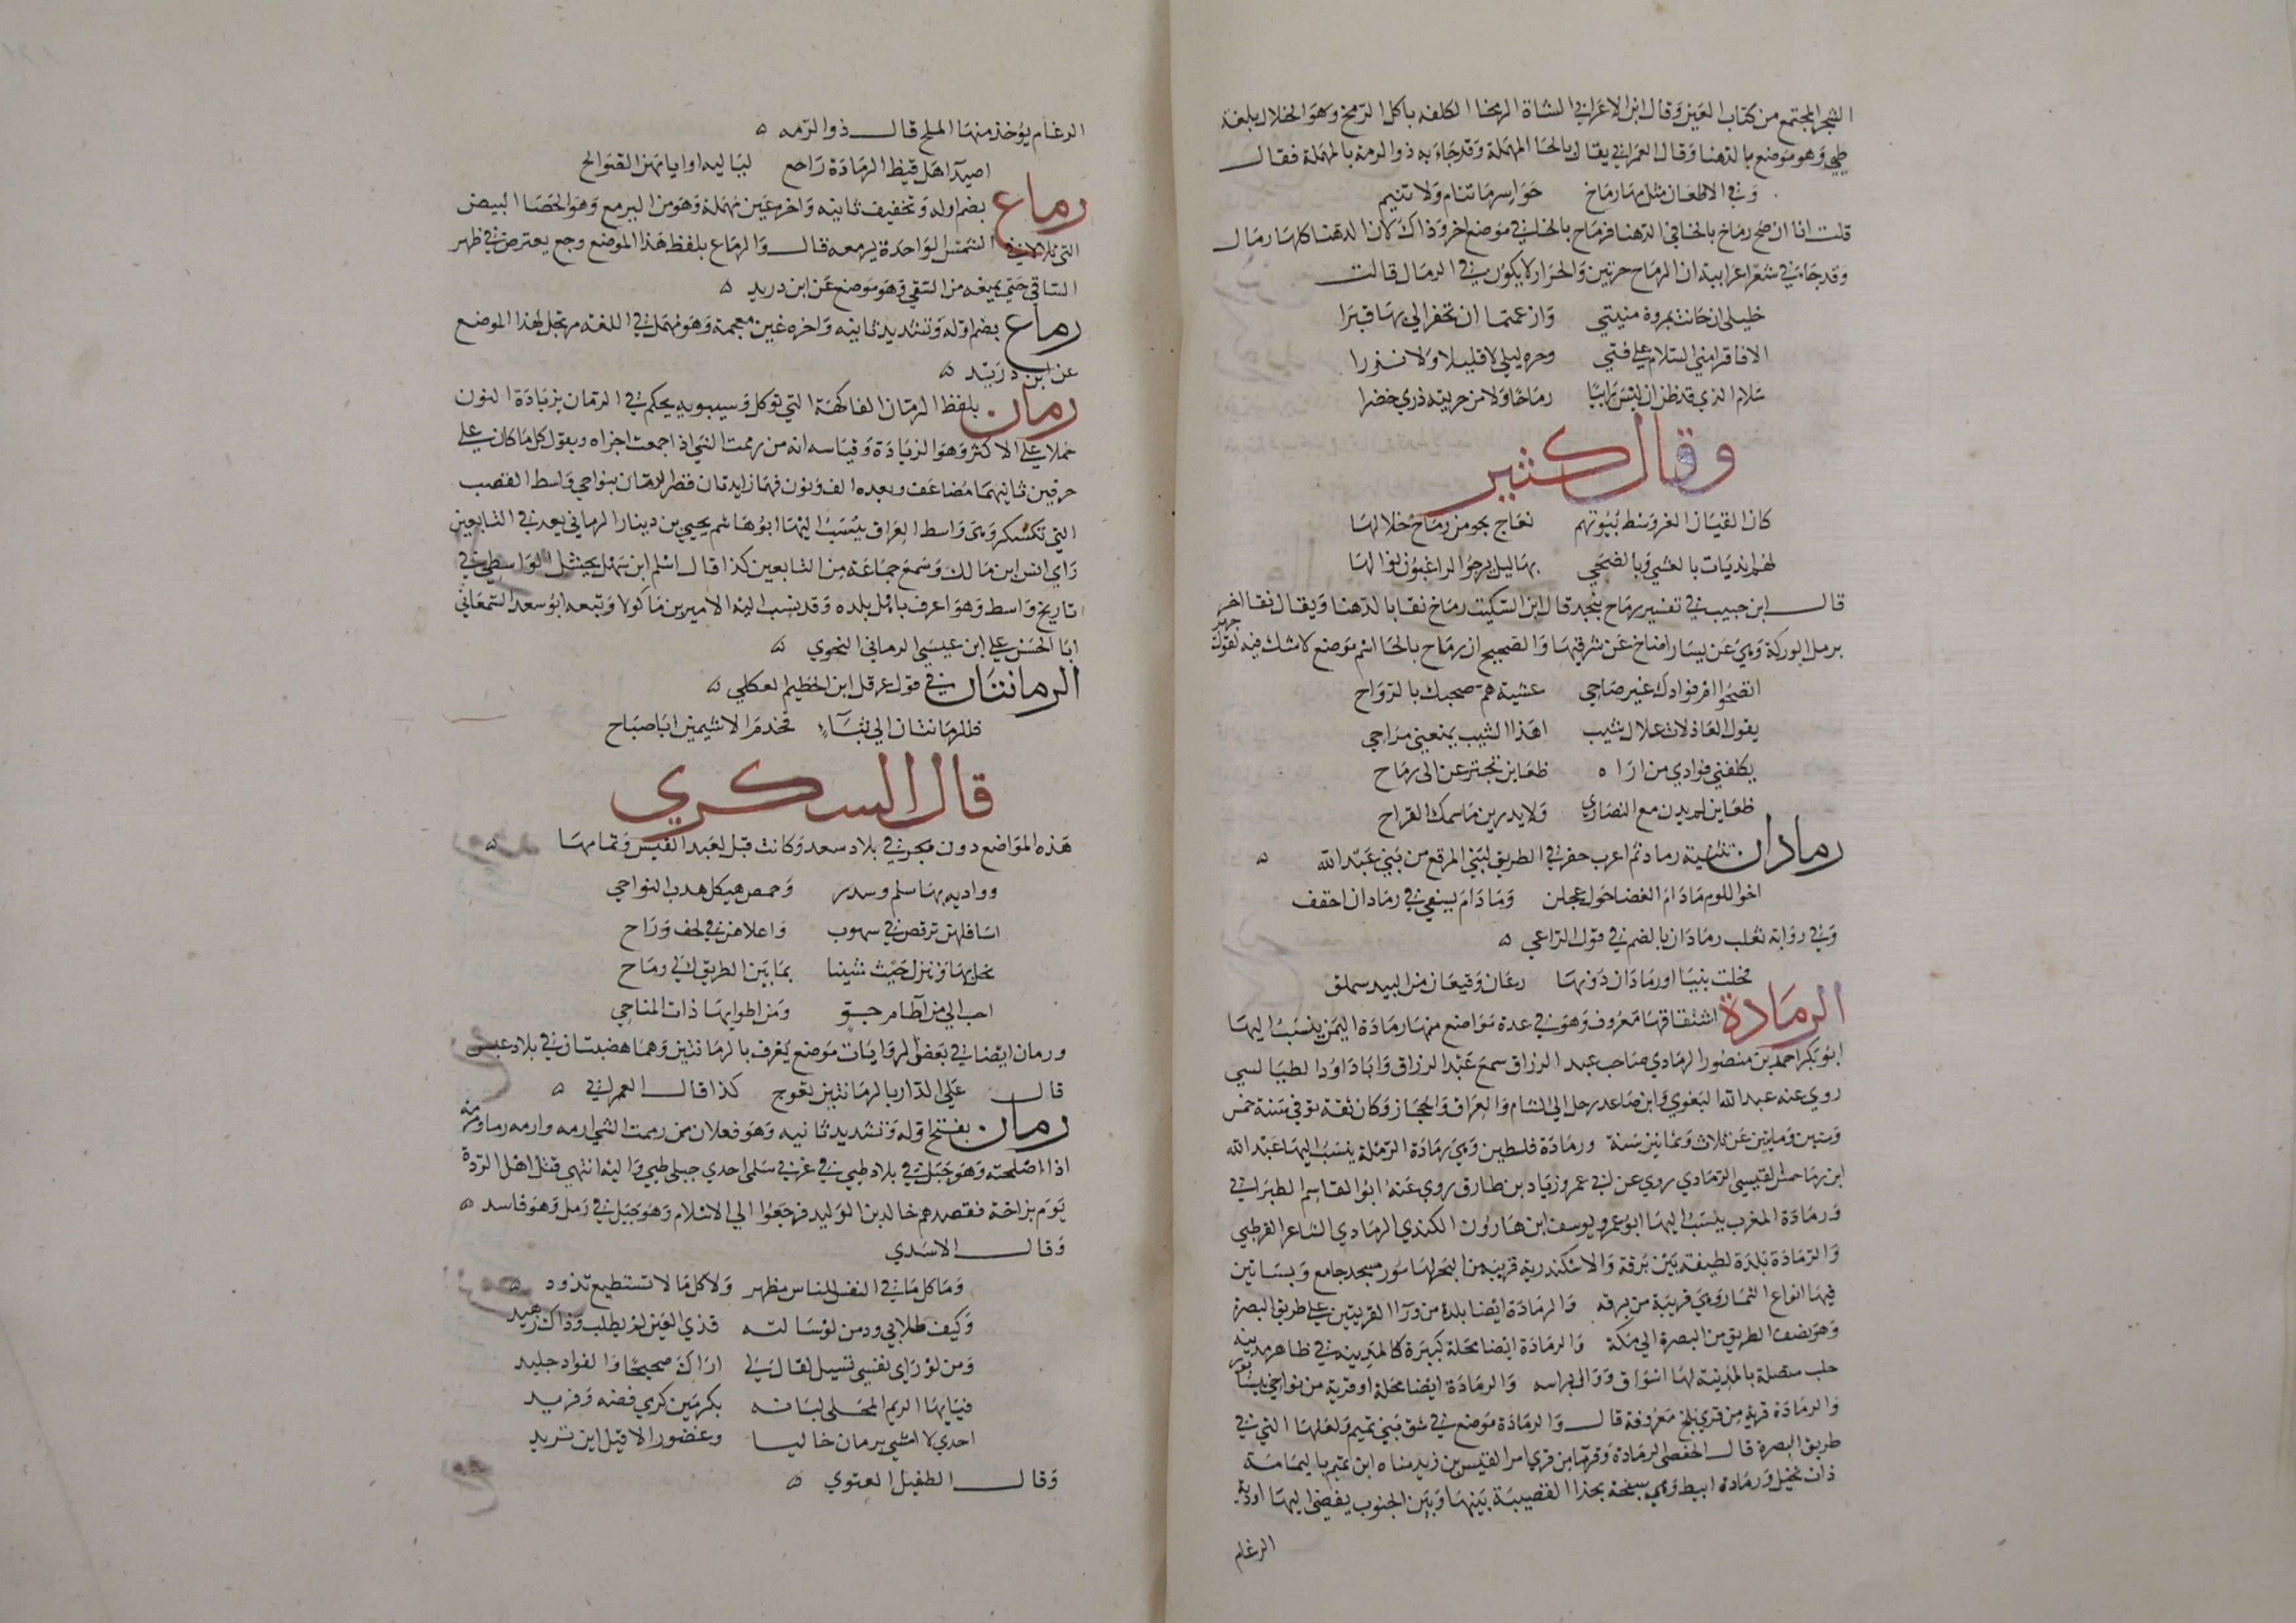 الشجر المجتمع من كتاب العين وقال ابن الاعرابي الشاة الرمخا الكلفه باكل الرمخ وهو الخلال بلغة
طيي وهو موضع بالدهنا وقال العمراني يقال بالحا المهملة وقد جا به ذو الرمه بالمهملة فقال
وفي الاظعان مثل مها رماخ حواسرها تنام ولا تنيم
قلت انا ان صح رماخ بالخا في الدهنا فرماح بالحا في موضع اخر وذاك لان الدهنا كلها رمال
وقد جا في شعر اعرابية ان الرماح حرتين والحرار لا يكون في الرمال قالت
خليلي ان حانت بمروة منيتي وازعمتما ان تحفرا لي بها قبرا
الا فاقرا مني السلام علي فتي وحره ليلي لا قليلا ولا نزرا
سلام الذي قد ظن ان ليس رايا رماحا ولا من حرتيه ذري خضرا
وقال كثير
كان القيان الغر وسط بيوتهم نعاج بجو من رماح خلا لها
لهم انديات بالعشي وبالضحي بهاليل يرجو الراغبون نوالها
قال ابن حبيب في تفسير رماح بنجد قال ابن السكيت رماخ نقا بالدهنا ويقال نقا اخر
برمل الوركة وهي عن يسار اضاخ عن شرقيها والصحيح ان رماح بالحا اسم موضع لا شك فيه لقول جرير
اتصحوا ام فوادك غير صاحي عشية هم صحبك بالرواح
يقول العاذلات علاك شيب اهذا الشيب يمنعني مراحي
يكلفني فوادي من اراه ظعاين يجتزعن الي رماح
ظعاين لم يدن مع النصاري ولا يدرين ما سمك القراح
رمادان تثنية رماد ثم اعرب حفر في الطريق لبني المرقع من بني عبد الله
اخو اللوم ما دام الغضا حول عجلز وما دام يسقي في رمادان احقف
وفي رواية ثعلب رمادان بالضم في قول الراعي
فحلت بنيا او رمادان دونها رعان وقيعان من البيد سملق
الرمادة اشتقاقها معروف وهو في عدة مواضع منها رمادة اليمن ينسب اليها
ابو بكر احمد بن منصور الرمادي صاحب عبد الرزاق سمع عبد الرزاق وابا داود الطيالسي
روي عنه عبد الله البغوي وابن صاعد رحل الي الشام والعراق والحجاز وكان ثقة توفي سنة خمس
وستين ومايتين عن ثلاث وثمانين سنة ورمادة فلسطين وهي رمادة الرملة ينسب اليها عبد الله
ابن رماحس القيسي الرمادي روي عن ابي عمرو زياد بن طارق روي عنه ابو القاسم الطبراني
ورمادة المغرب ينسب اليها ابو عمرو يوسف ابن هارون الكندي الرمادي الشاعر القرطبي
والرمادة بلدة لطيفة بين برقة والاسكندرية قريبه من البحر لها سور مسجد جامع وبساتين
فيها انواع الثمار وهي قريبة من برقه والرمادة ايضا بلدة من ورا القريتين علي طريق البصرة
وهو نصف الطريق من البصرة الي مكة والرمادة ايضا محلة كبيرة كالمدينه في ظاهر مدينه
حلب متصلة بالمدينة لها اسواق ووالي براسه والرمادة ايضا محلة او قرية من نواحي نيسابور
والرمادة قرية من قري بلخ معروفة قال والرمادة موضع في شق بني تميم ولعلها التي في
طريق البصرة قال الحفصي الرمادة وقرماء من قري امرا القيس بن زيد مناه ابن تميم باليمامة
ذات نخيل ورمادة ابيط وهي سبخة بحذا القصيبة بينها وبين الجنوب يفضي اليها اودية
الرغام
الرغام يؤخذ منها الملح قال ذو الرمه
اصيدا هل قيظ الرمادة راجع لياليه او ايامهن الصوالح
رماع بضم اوله وتخفيف ثانيه واخره عين مهملة وهو من اليرمع وهو الحصا البيض
التي تلالا في الشمس الواحدة يرمعه قال والرماع بلفظ هذا الموضع وجع يعترض في ظهر
الساقي حتي يمنعه من السقي وهو موضع عن ابن دريد
رماغ بضم اوله وتشديد ثانيه واخره غين معجمة وهو مهمل في اللغة مرتجل لهذا الموضع
عن ابن دريد
رمان بلفظ الرمان الفاكهة التي توكل وسيبويه يحكم في الرمان بزيادة النون
حملا علي الاكثر وهو الزيادة وقياسه انه من رممت الشي اذا جمعت اجزاه ويقول كل ما كان علي
حرفين ثانيهما مضاعف وبعده الف ونون فهما زايدتان قصر الرمان بنواحي واسط القصب
التي تكسكر وهي واسط العراق ينسب اليها ابو هاشم يحيي بن دينار الرماني يعد في التابعين
راي انس ابن مالك وسمع جماعة من التابعين كذا قال اسلم ابن سهل بحشل الواسطي في
تاريخ واسط وهو اعرف باهل بلده وقد نسب اليه الامير بن ماكولا وتبعه ابو سعد السمعاني
ابا الحسن علي ابن عيسي الرماني النحوي
الرمانتان في قول عرقل ابن الخطيم العكلي
فللرمانتان الي ثباء فحدم الاشيمين ابا صباح
قال السكري
هذه المواضع دون هجر في بلاد سعد وكانت قبل لعبد القيس وتمامها
وواديه بها سلم وسدر وحمص هيكل هدب النواحي
اسافلهن ترقص في سهوب واعلاهن في لحف وراح
نحل بها وننزل حيث شينا بما بين الطريق الي رماح
احب الي من اطام جو ومن اطوابها ذات المناحي
ورمان ايضا في بعض الروايات موضع يعرف بالرمانتين وهما هضبتان في بلاد عبس
قال علي الدار بالرمانتين تعوج كذا قال العمراني
رمان بفتح اوله وتشديد ثانيه وهو فعلان من رممت الشي ارمه وارمه رما ومرمه
اذا اصلحته وهو جبل في بلاد طيي في غربي سلمي احدي جبلي طيي واليه انتهي فتل اهل الردة
يوم بزاخة فقصدهم خالد بن الوليد فرجعوا الي الاسلام وهو جبل في رمل وهو فاسد
وقال الاسدي
وما كل ما في النفس للناس مظهر ولا كل ما لا تستطيع تذود
وكيف طلابي ود من لو سالته قذي العين لم يطلب وذاك زهيد
ومن لو راي نفسي تسيل لقال لي اراك صحيحا والفواد جليد
فيايها الريم المحلي لبانه بكرمين كرمي فضه وفريد
احدي لا امشي برمان خاليا وغضور الا قيل اين تريد
وقال الطفيل العنوي